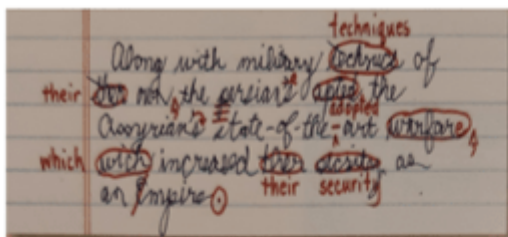 techniques
Along with military technics of
their ther non the persian's apted the
adopted
Assyrian's state-of-the-art warfare
which wich increased ther as
their security
an Empire.